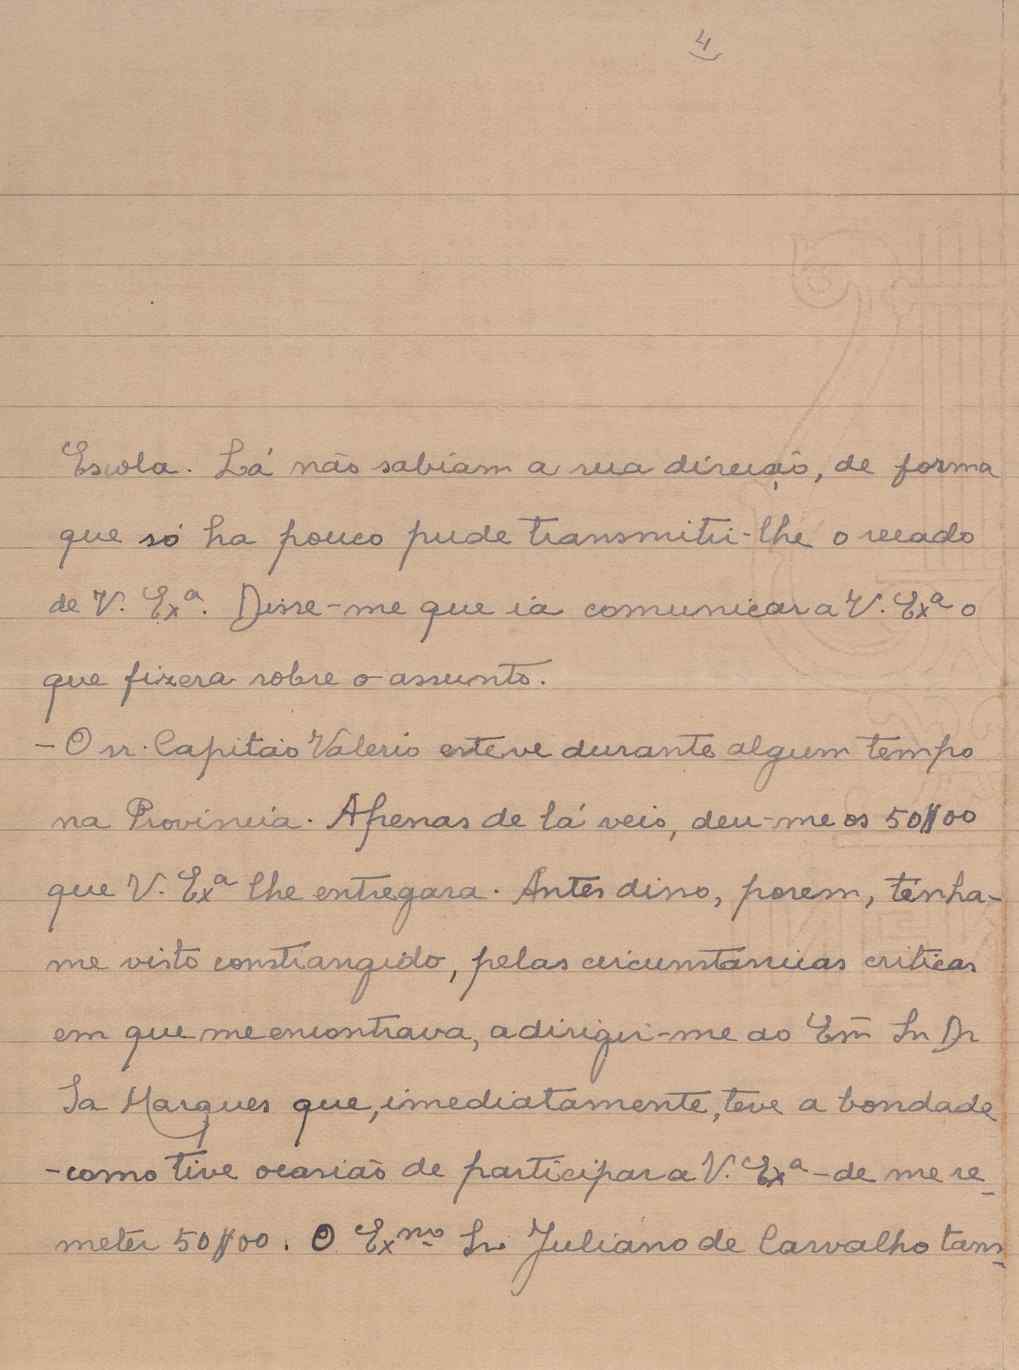 4
Escola. Lá não sabiam a sua direcção, de forma
que só ha pouco pude transmitir-lhe o recado
de V. Exª. Disse-me que ia comunicar a V. Exª o
que fizera sobre o assunto.
- O sr. Capitão Valerio esteve durante algum tempo
na Provincia. Apenas de lá veio, deu-me os 50$00
que V. Exª lhe entregara. Antes disso, porem, tenha-
me visto constrangido, pelas circunstancias criticas
em que me encontrava, a dirigir-me ao Em̃ Sr Dr
Sa Marques que, imediatamente, teve a bondade
- como tive ocasião de participar a V. Exª - de me re-
meter 50$00. O Exmo Sr. Juliano de Carvalho tam-